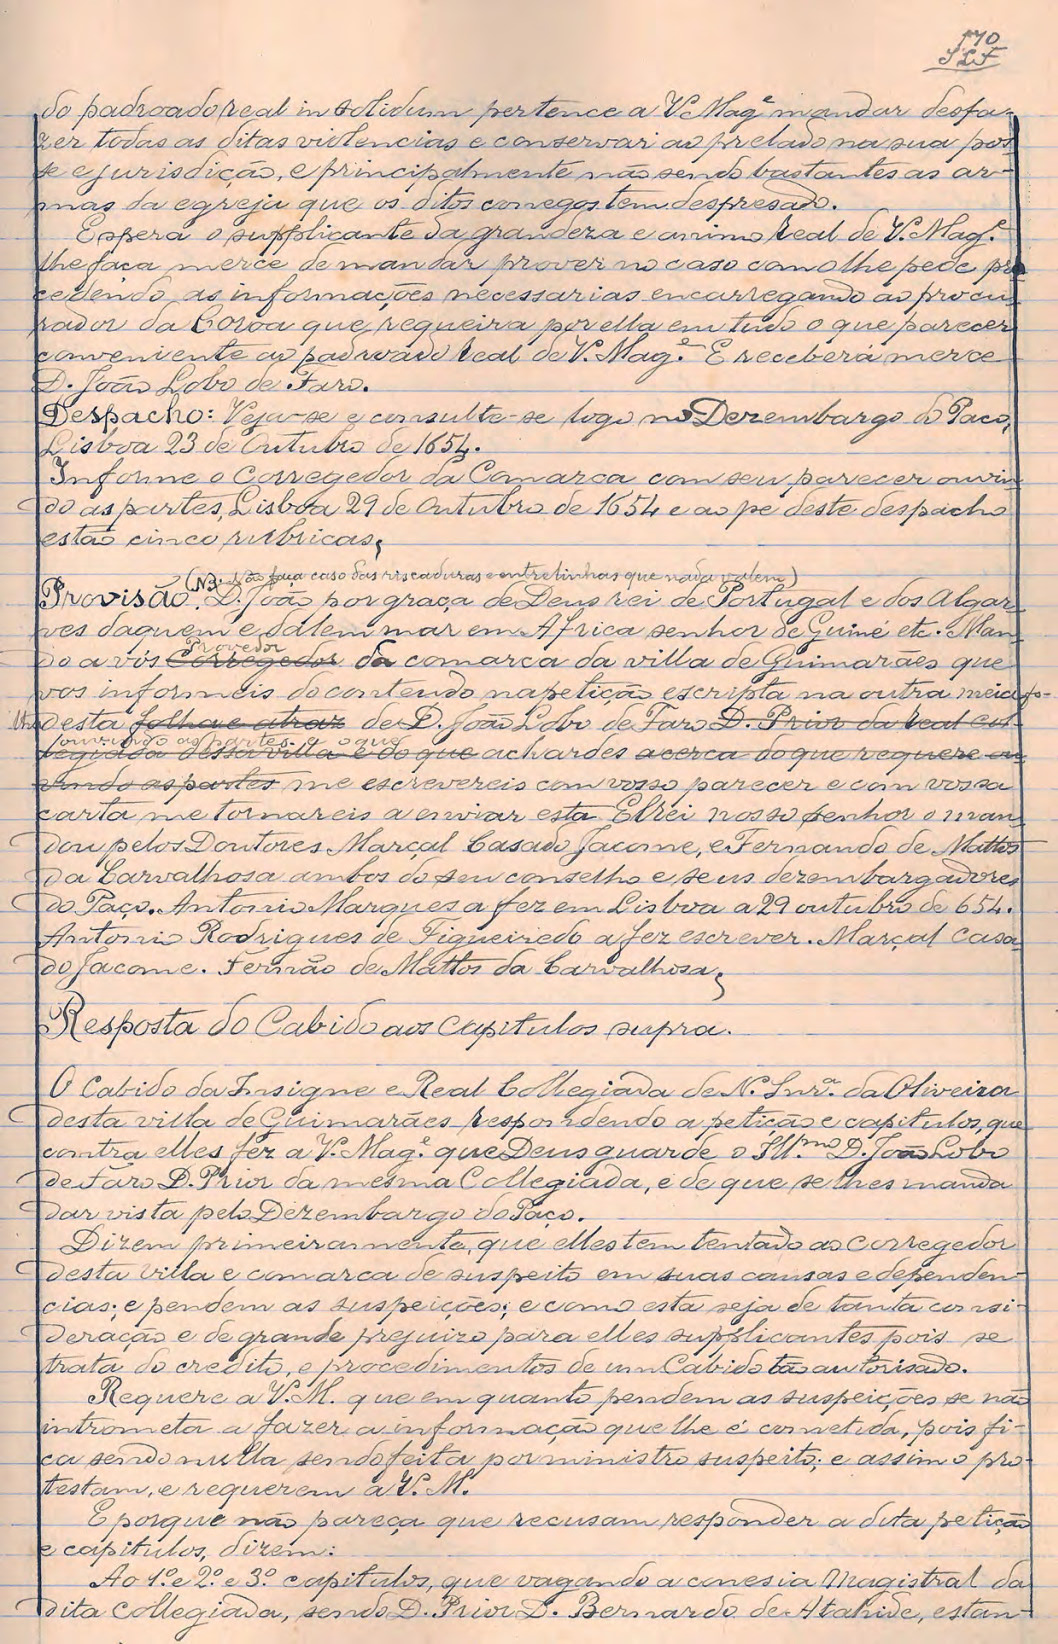 170
do padroado real in solidum pertence a V. Magᵉ mandar desfa-
zer todas as ditas violencias e conservar ao prelado na sua pos-
se e jurisdição, e principalmente não sendo bastantes as ar-
mas da egreja que os ditos conegos tem despresado.
Espera o supplicante da grandeza e animo real de V. Mag.ᵉ
lhe faça merce de mandar prover no caso como lhe pede pre-
cedendo as informações necessarias encarregando ao procu-
rador da Coroa que requeira por ella em tudo o que parecer
conveniente ao padroado real de V. Mag.ᵉ E receberá merce
D. João Lobo de Faro.
Despacho: Veja-se e consulte-se logo no Dezembargo do Paço,
Lisboa 23 de Outubro de 1654.
Informe o Corregedor da Comarca com seu parecer ouvin-
do as partes, Lisboa 29 de Outubro de 1654 e ao pe deste despacho
estão cinco rubricas,
(NB. Não faça caso das riscaduras e entrelinhas que nada valem)
Provisão. D. João por graça de Deus rei de Portugal e dos Algar-
ves daquem e dalem mar em Africa senhor de Guiné etc. Man-
Provedor
do a vós Corregedor da comarca da villa de Guimarães que
vos informeis do contendo na petição escripta na outra meia fo-
lha desta folha e atraz de D. João Lobo de Faro D. Prior da real col-
ouvindo as partes e o que
legiada dessa villa e do que achardes acerca do que requere ou-
vindo as partes me escrevereis com vosso parecer e com vossa
carta me tornareis a enviar esta Elrei nosso senhor o man-
dou pelos Doutores Marçal Casado Jacome, e Fernando de Mattos
da Carvalhosa ambos do seu conselho e seus dezembargadores
do Paço. Antonio Marques a fez em Lisboa a 29 outubro de 654.
Antonio Rodrigues de Figueiredo a fez escrever. Marçal Casa-
do Jacome. Fernão de Mattos da Carvalhosa,
Resposta do Cabido aos capitulos supra.
O Cabido da Insigne e Real Collegiada de N. Snrª. da Oliveira
desta villa de Guimarães respondendo a petição e capitulos, que
contra elles fez a V. Mag.ᵉ que Deus guarde o Ill.ᵐᵒ D. João Lobo
de Faro D. Prior da mesma Collegiada, e de que se lhes manda
dar vista pelo Dezembargo do Paço.
Dizem primeiramente, que elles tem tentado ao corregedor
desta villa e comarca de suspeito em suas causas e dependen-
cias; e pendem as suspeições; e como esta seja de tanta consi-
deração e de grande prejuizo para elles supplicantes pois se
trata do credito, e procedimentos de um Cabido tão autorisado.
Requere a V. M. que em quanto pendem as suspeições se não
intrometa a fazer a informação que lhe é cometida, pois fi-
ca sendo nulla sendo feita por ministro suspeito; e assim o pro-
testam, e requerem a V. M.
E porque não pareça que recusam responder a dita petição
e capitulos, dizem:
Ao 1º. e 2º. e 3º. capitulos, que vagando a conesia Magistral da
dita Collegiada, sendo D. Prior D. Bernardo de Atahide, estan-